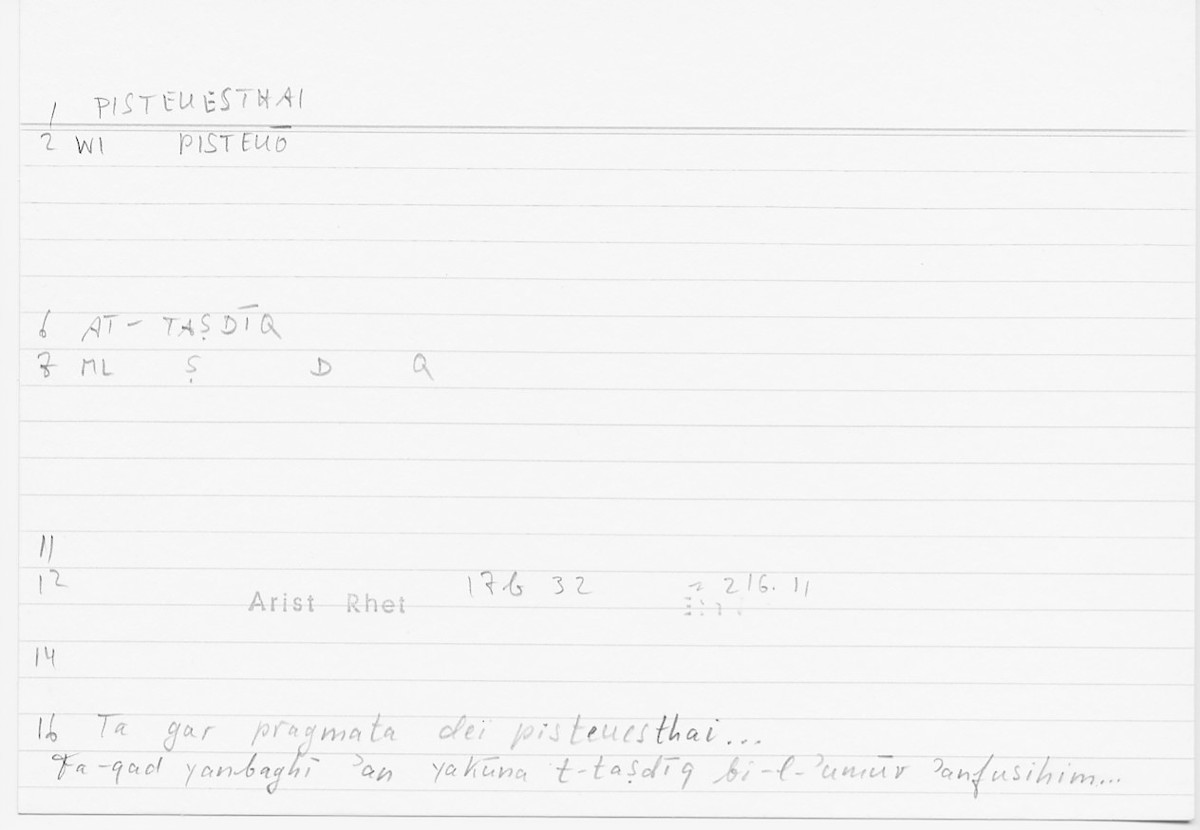 1 PISTEUESTHAI
2 WI PISTEUŌ
6 AT-TAṢDĪQ
7 ML Ṣ D Q
11
12 Arist Rhet 17b 32 216.11
14
16 Ta gar pragmata dei pisteuesthai...
Fa-qad yanbaghī ʾan yakūna t-taṣdīq bi-l-ʾumūr ʾanfusihim...